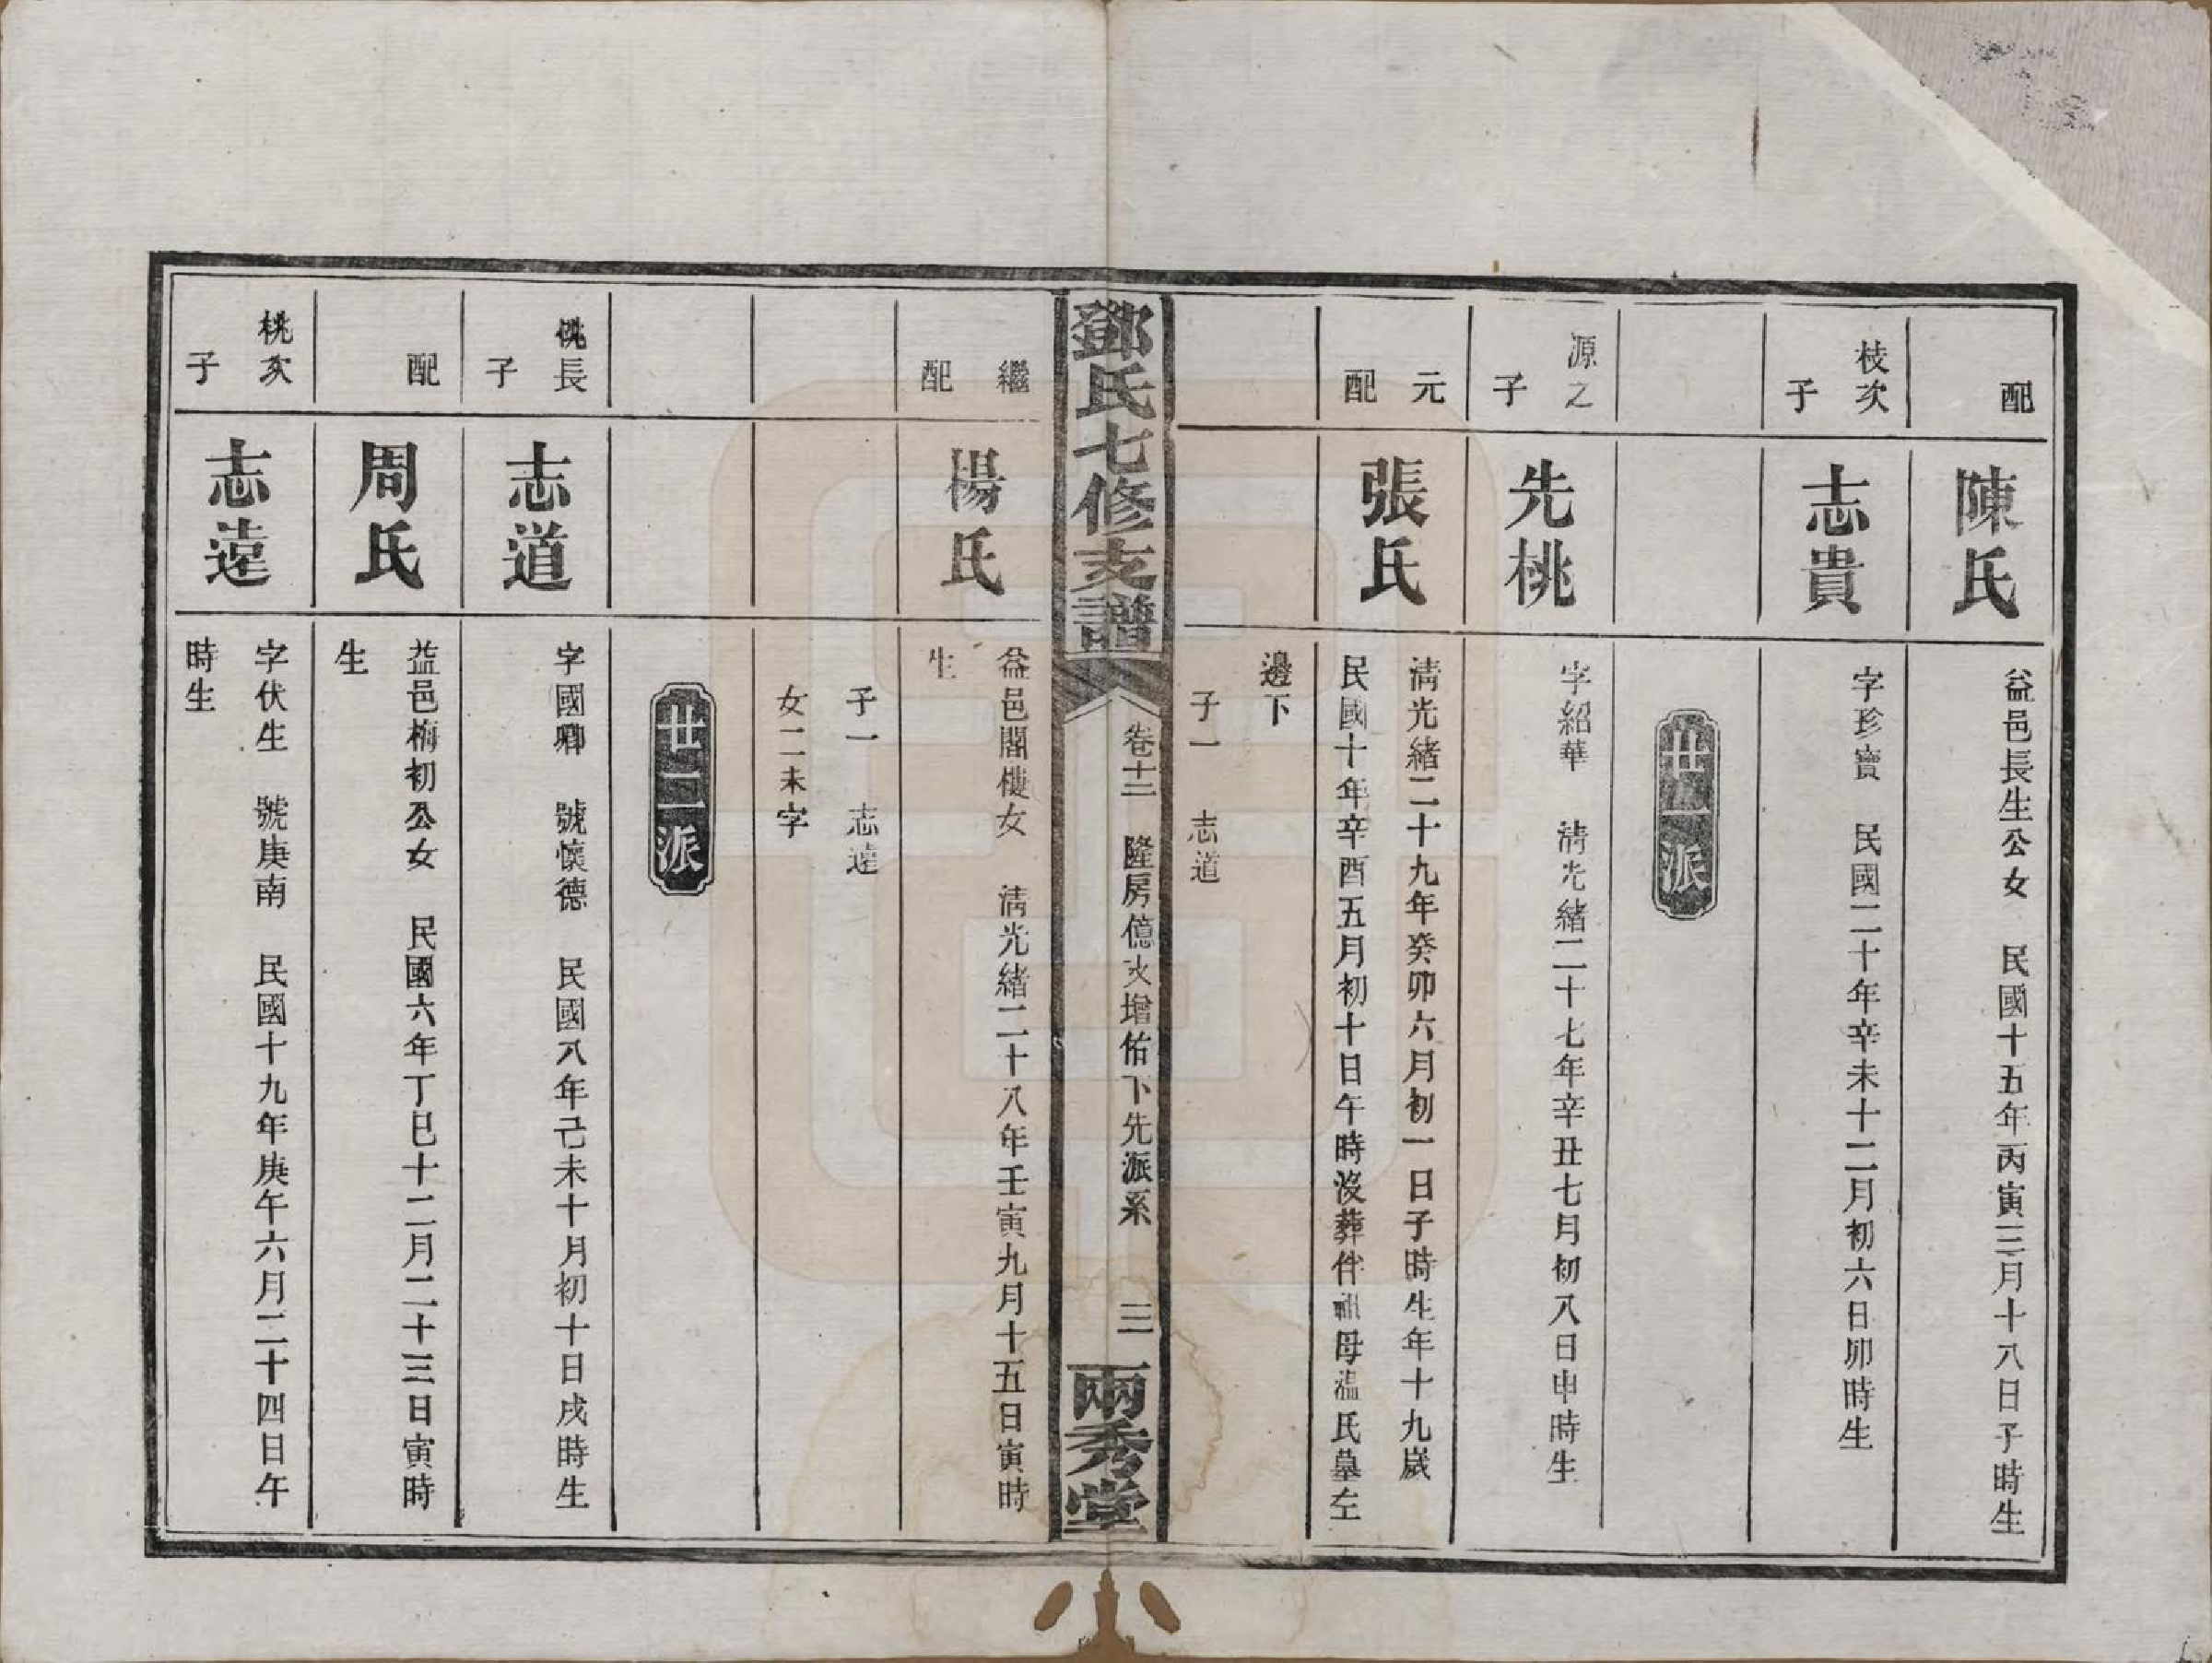 配
陳氏
益邑長生公女　民國十五年丙寅三月十八日子時生
枝次
子
志貴
字珍寶　民國二十年辛未十二月初六日卯時生
世一派
源之
子
先桃
字紹華　清光緒二十七年辛丑七月初八日申時生
元
配
張氏
清光緒二十九年癸卯六月初一日子時生年十九歲
民國十年辛酉五月初十日午時沒葬伴祖母溫氏墓左
邊下
子一　志道
鄧氏七修支譜
卷十二　隆房億火增佑下先派系　三
兩秀堂
繼
配
楊氏
益邑閣樓女　清光緒二十八年壬寅九月十五日寅時
生
子一　志遠
女二未字
世二派
桃長
子
志道
字國卿　號懷德　民國八年己未十月初十日戌時生
配
周氏
益邑梅初公女　民國六年丁巳十二月二十三日寅時
生
桃次
子
志遠
字伏生　號庚南　民國十九年庚午六月二十四日午
時生